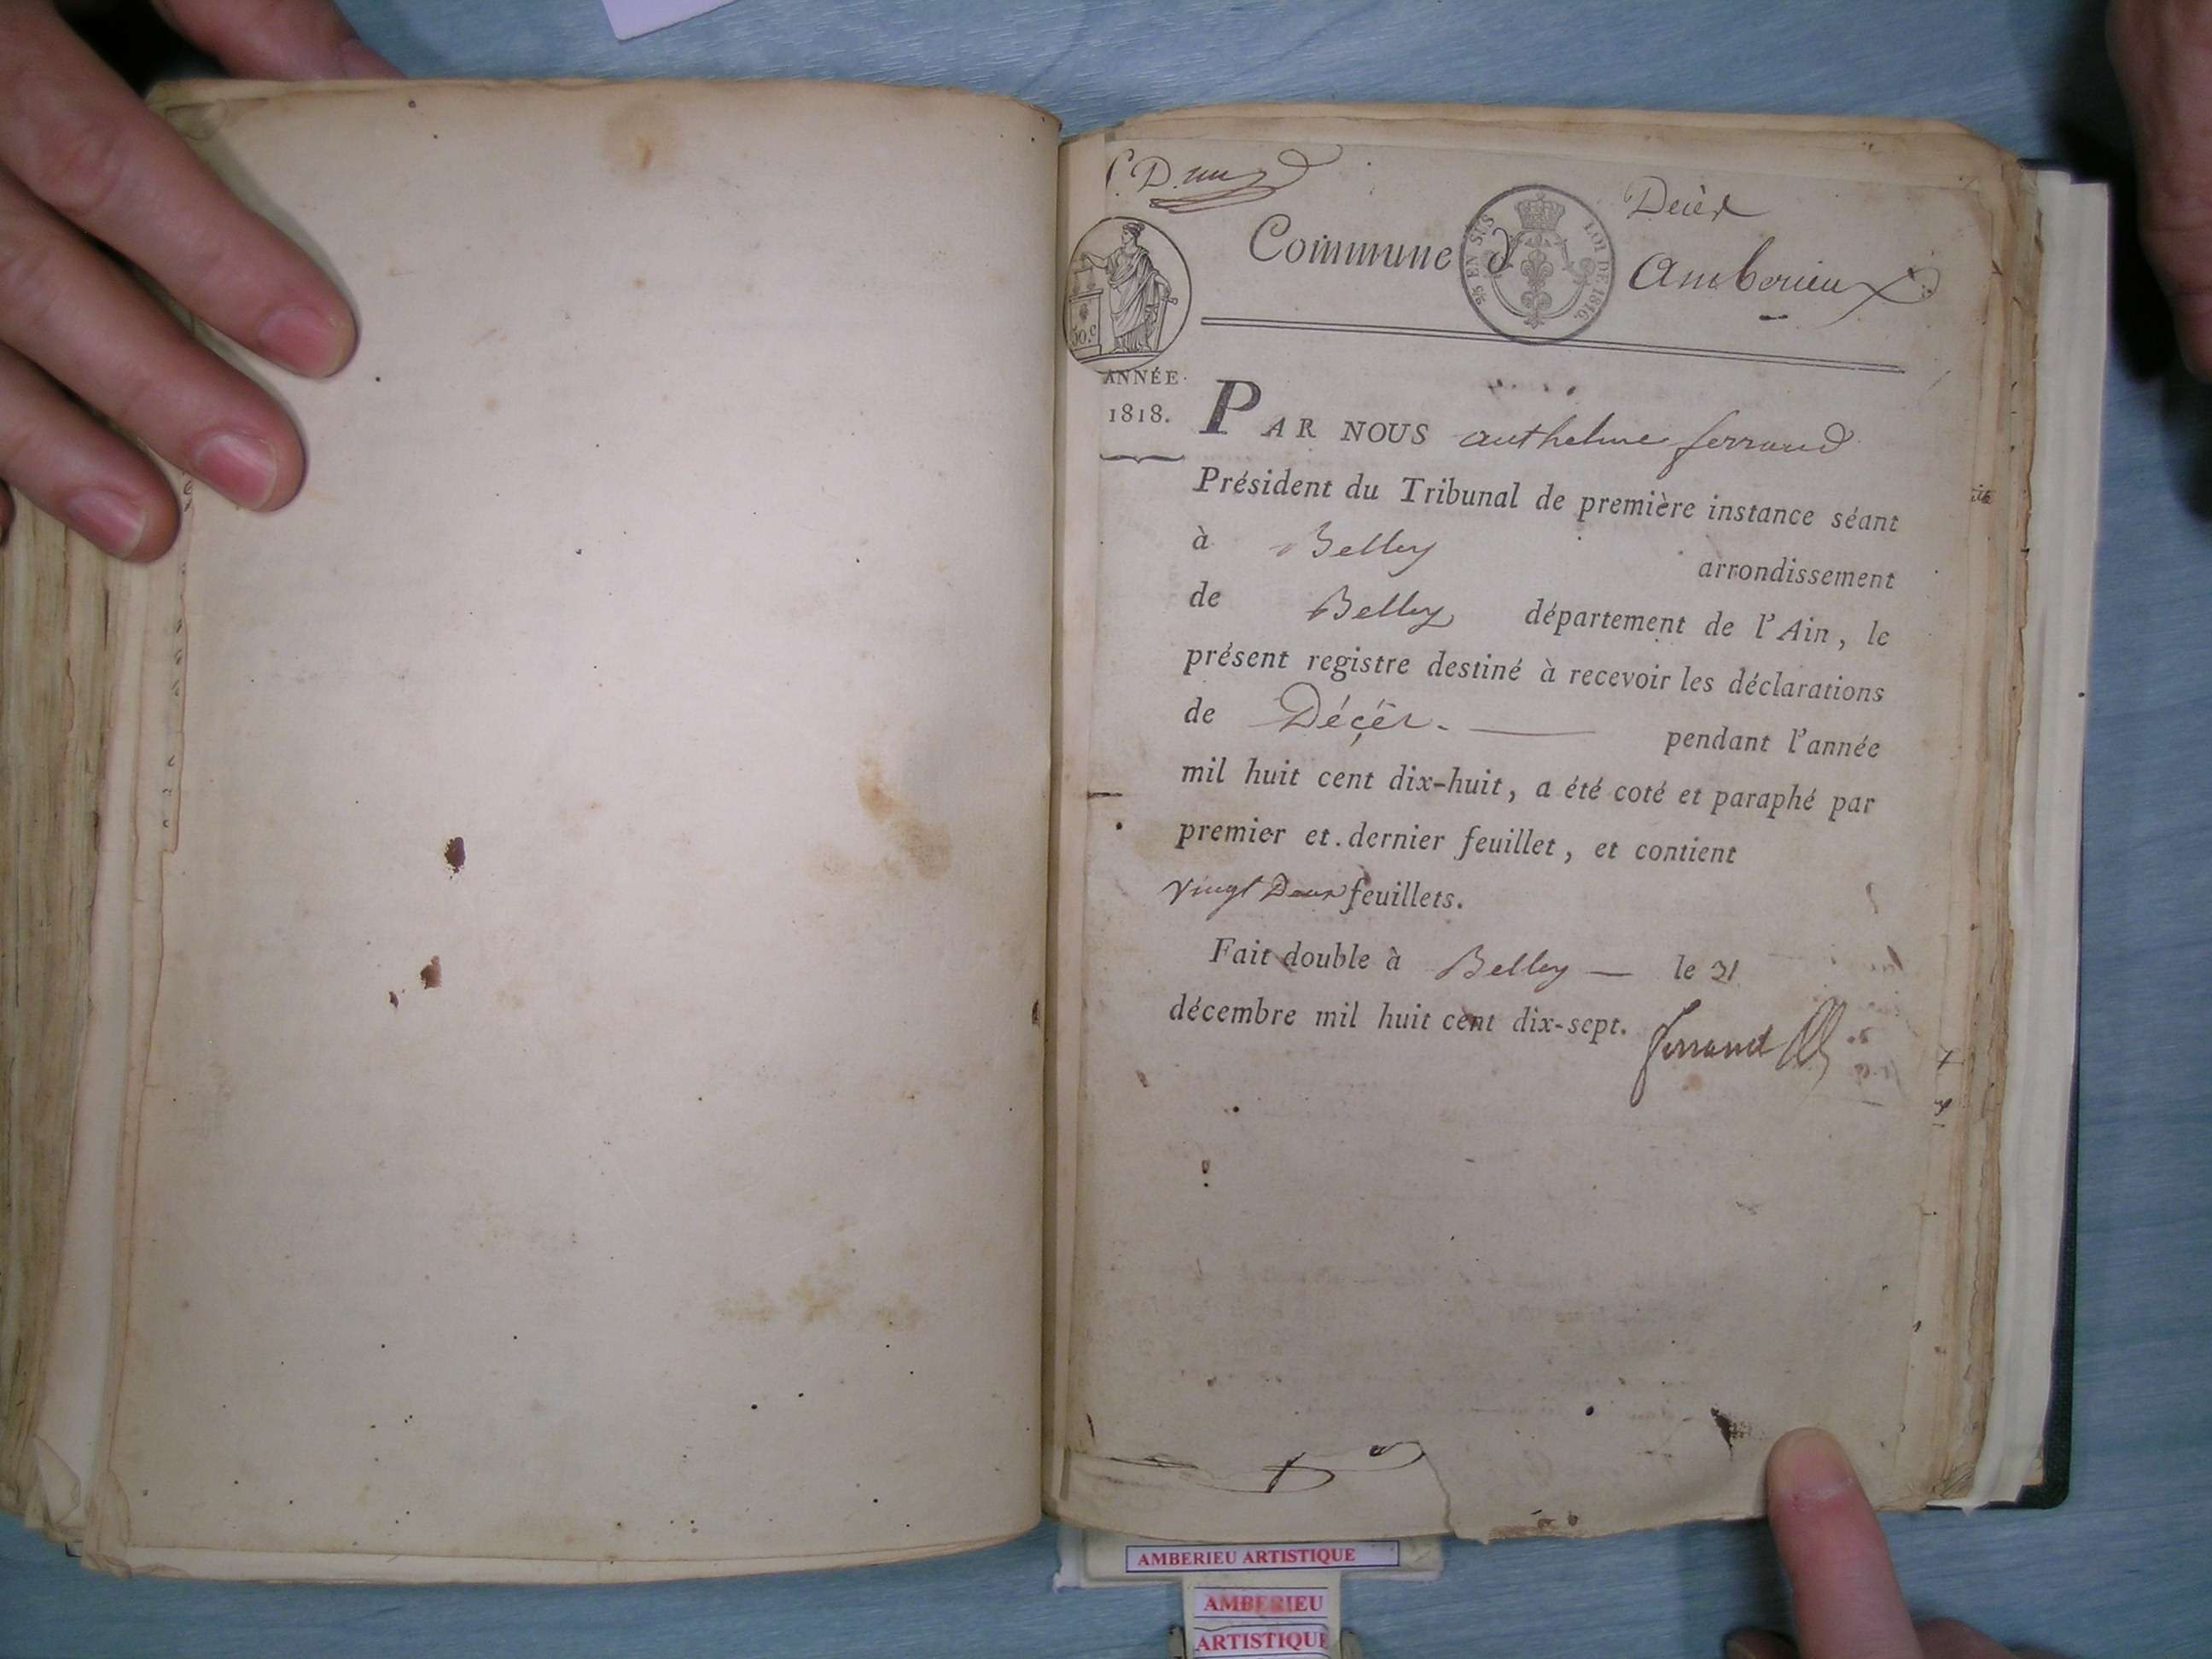 Décès
Commune d'Amberieux
25 EN SUS
LOI DE 1816.
50.c
ANNÉE
1818.
PAR NOUS anthelme ferrand
Président du Tribunal de première instance séant
à Belley arrondissement
de Belley département de l'Ain, le
présent registre destiné à recevoir les déclarations
de Décès. pendant l'année
mil huit cent dix-huit, a été coté et paraphé par
premier et dernier feuillet, et contient
vingt Deux feuillets.
Fait double à Belley — le 31
décembre mil huit cent dix-sept.
ferrand
AMBERIEU ARTISTIQUE
AMBERIEU
ARTISTIQUE